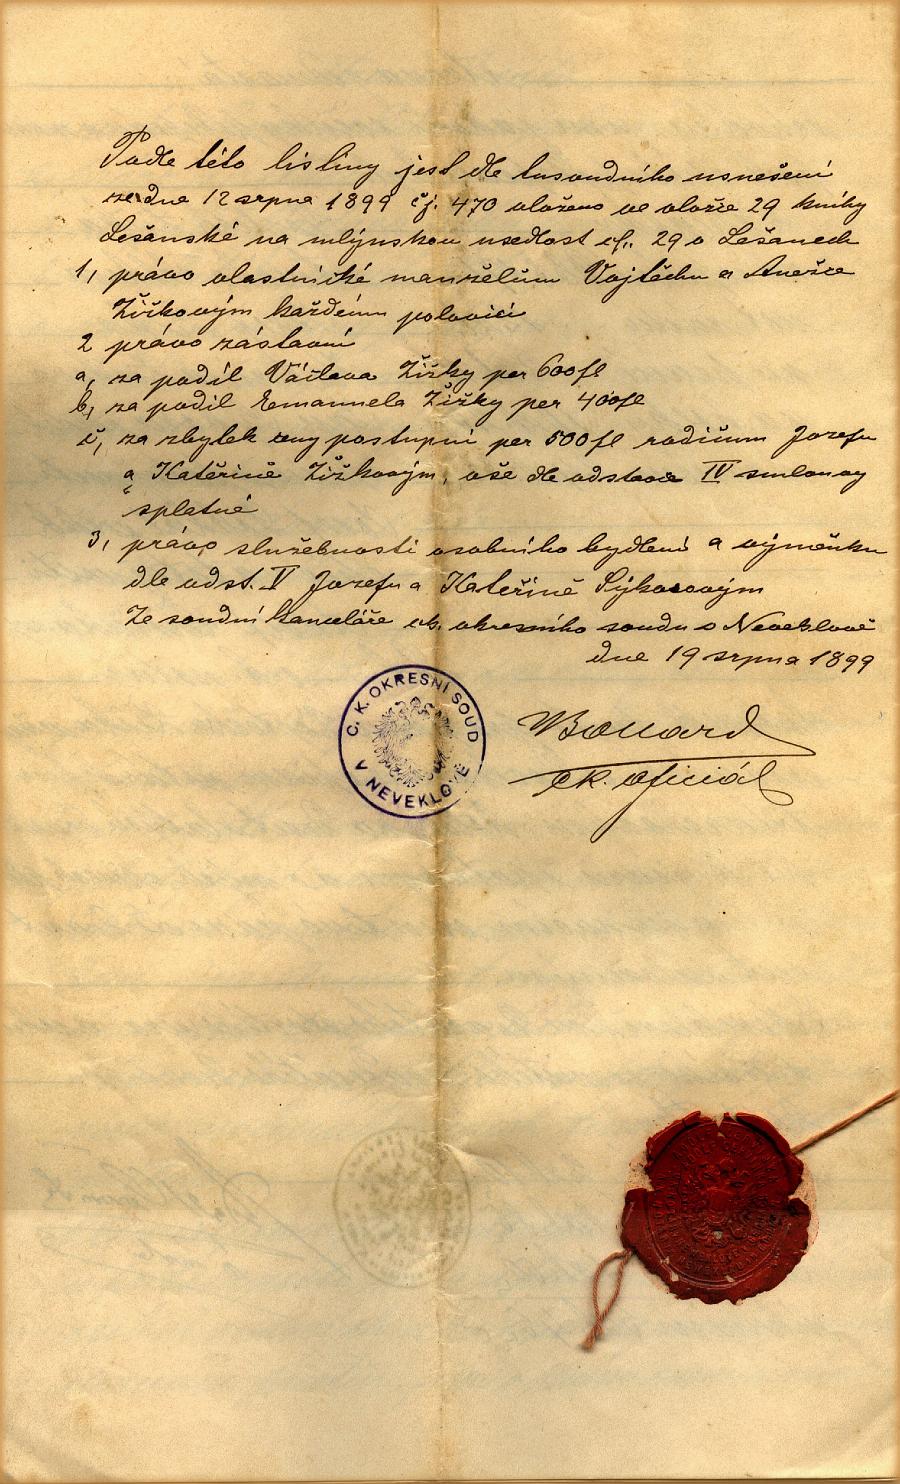 Podle této listiny jest dle tusoudního usnešení
ze dne 12 srpna 1899 čj. 470 vloženo ve vložce 29 knihy
Lešanské na mlýnskou usedlost čp. 29 v Lešanech
1, právo vlastnické manželům Vojtěchu a Anežce
Žižkovým každému polovici
2 právo zástavní
a, za podíl Václava Žižky per 600 fl
b, za podíl Emanuela Žižky per 400 fl
c, za zbytek ceny postupní per 500 fl rodičům Jozefu
a Kateřině Žižkovým, vše dle odstavce IV smlouvy
splatné
3, právo služebnosti osobního bydlení a výměnku
dle odst. V Jozefu a Kateřině Sýkorovým
Ze soudní kanceláře ck. okresního soudu v Neveklově
dne 19 srpna 1899
C. K. OKRESNÍ SOUD
V NEVEKLOVĚ
ck. oficiál